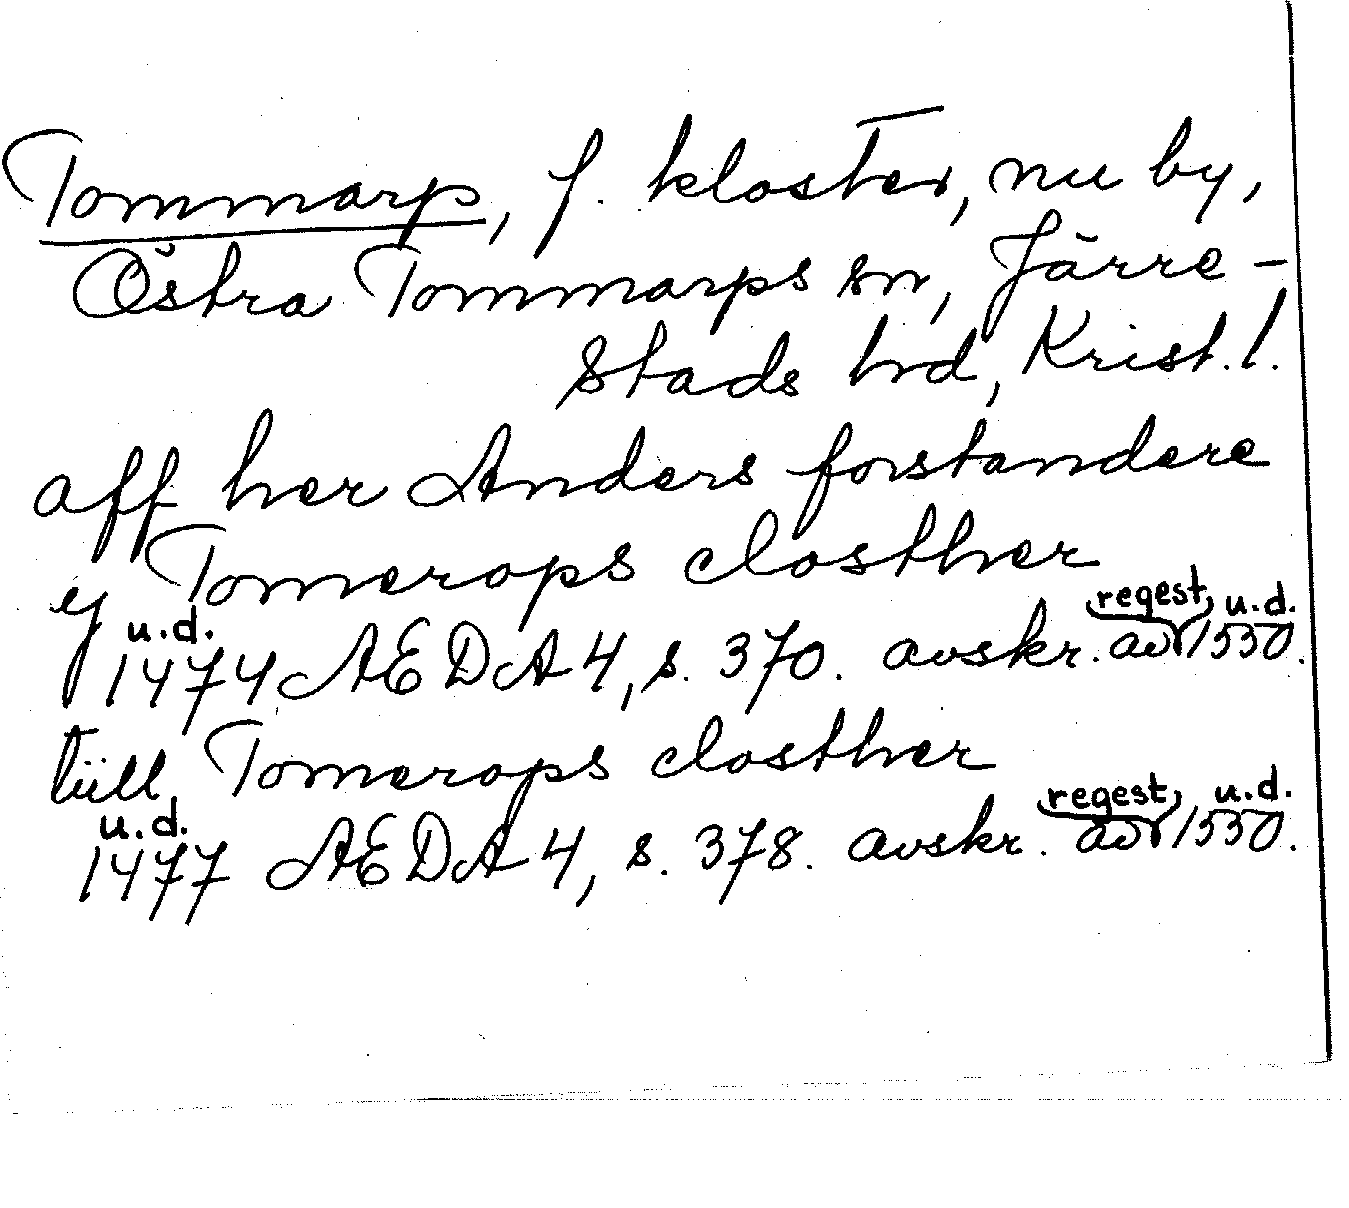 Tommarp, f. kloster, nu by,
Östra Tommarps sn, Järre-
stads hd, Krist. l.
aff her Anders forstandere
y Tomerops closther
u.d. regest u.d.
1474 AEDA 4, s. 370. avskr. av 1530.
tiill Tomerops closther
u.d. regest u.d.
1477 AEDA 4, s. 378. avskr. av 1530.